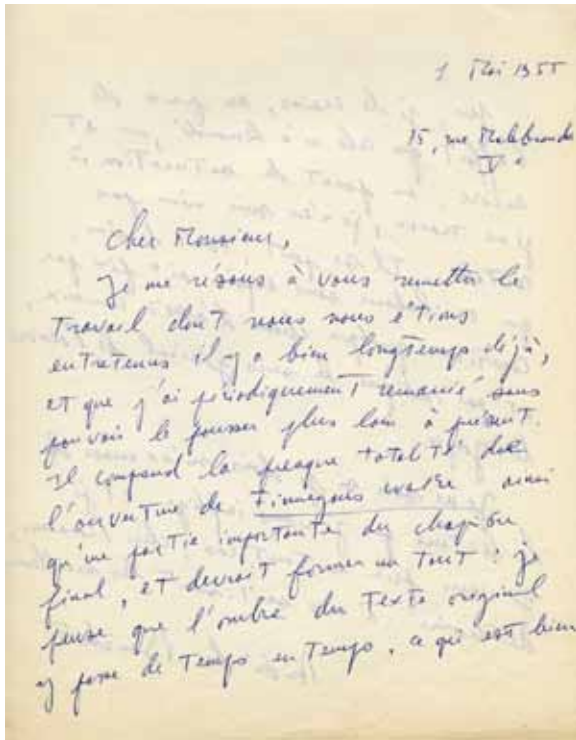 1 Mai 1955
15, rue Malebranche
V e
Cher Monsieur,
Je me résous à vous remettre le
travail dont nous nous étions
entretenus il y a bien longtemps déjà,
et que j'ai périodiquement remanié sans
pouvoir le pousser plus loin à présent.
Il comprend la presque totalité de
l'ouverture de Finnegans wake ainsi
qu'une partie importante du chapitre
final, et devrait former un tout : je
pense que l'ombre du texte original
y passe de temps en temps, ce qui est bien